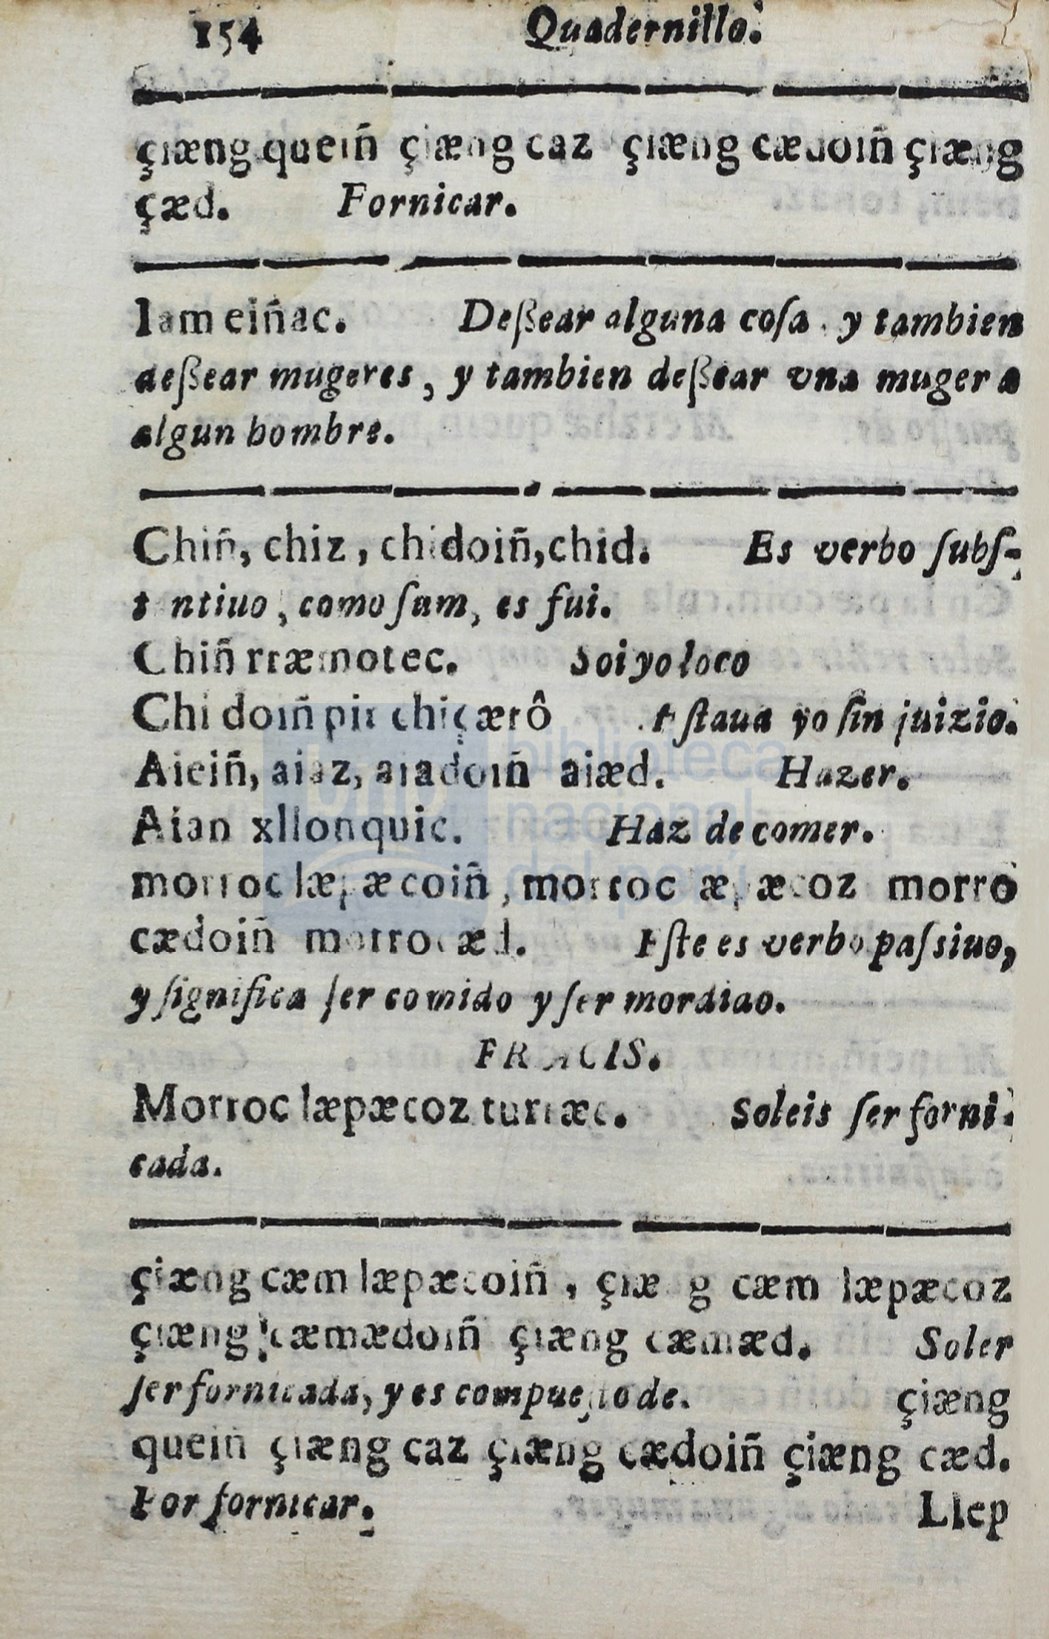 154 Quadernillo.
çiæng quein̄ çiæng caz çiæng cædoin̄ çiæng
çæd. Fornicar.
Iam ein̄ac. Deßear alguna coſa y tambien
deßear mugeres, y tambien deßear vna muger a
algun hombre.
Chin̄, chiz, chidoin̄, chid. Es verbo ſubſ-
t ntiuo, como ſum, es fui.
Chin̄ rræmotec. Soi yo loco
Chi doin̄ pir chiçærô Eſtaua yo ſin juizio.
Aiein̄, aiaz, aiadoin̄ aiæd. Hazer.
Aian xllonquic. Haz de comer.
morroc læpæcoin̄, morroc læpæcoz morro
cædoin̄ morrocæd. Eſte es verbo paſsiuo,
y ſignifica ſer comido y ſer mordido.
FRACIS.
Morroc læpæcoz turræc. Soleis ſer forni-
cada.
çiæng cæm læpæcoin̄, çiæ g cæm læpæcoz
çiæng cæmædoin̄ çiæng cæmæd. Soler
ſer fornicada, y es compueſto de. çiæng
quein̄ çiæng caz çiæng cædoin̄ çiæng cæd.
Por fornicar. Llep
biblioteca
nacional
del perú